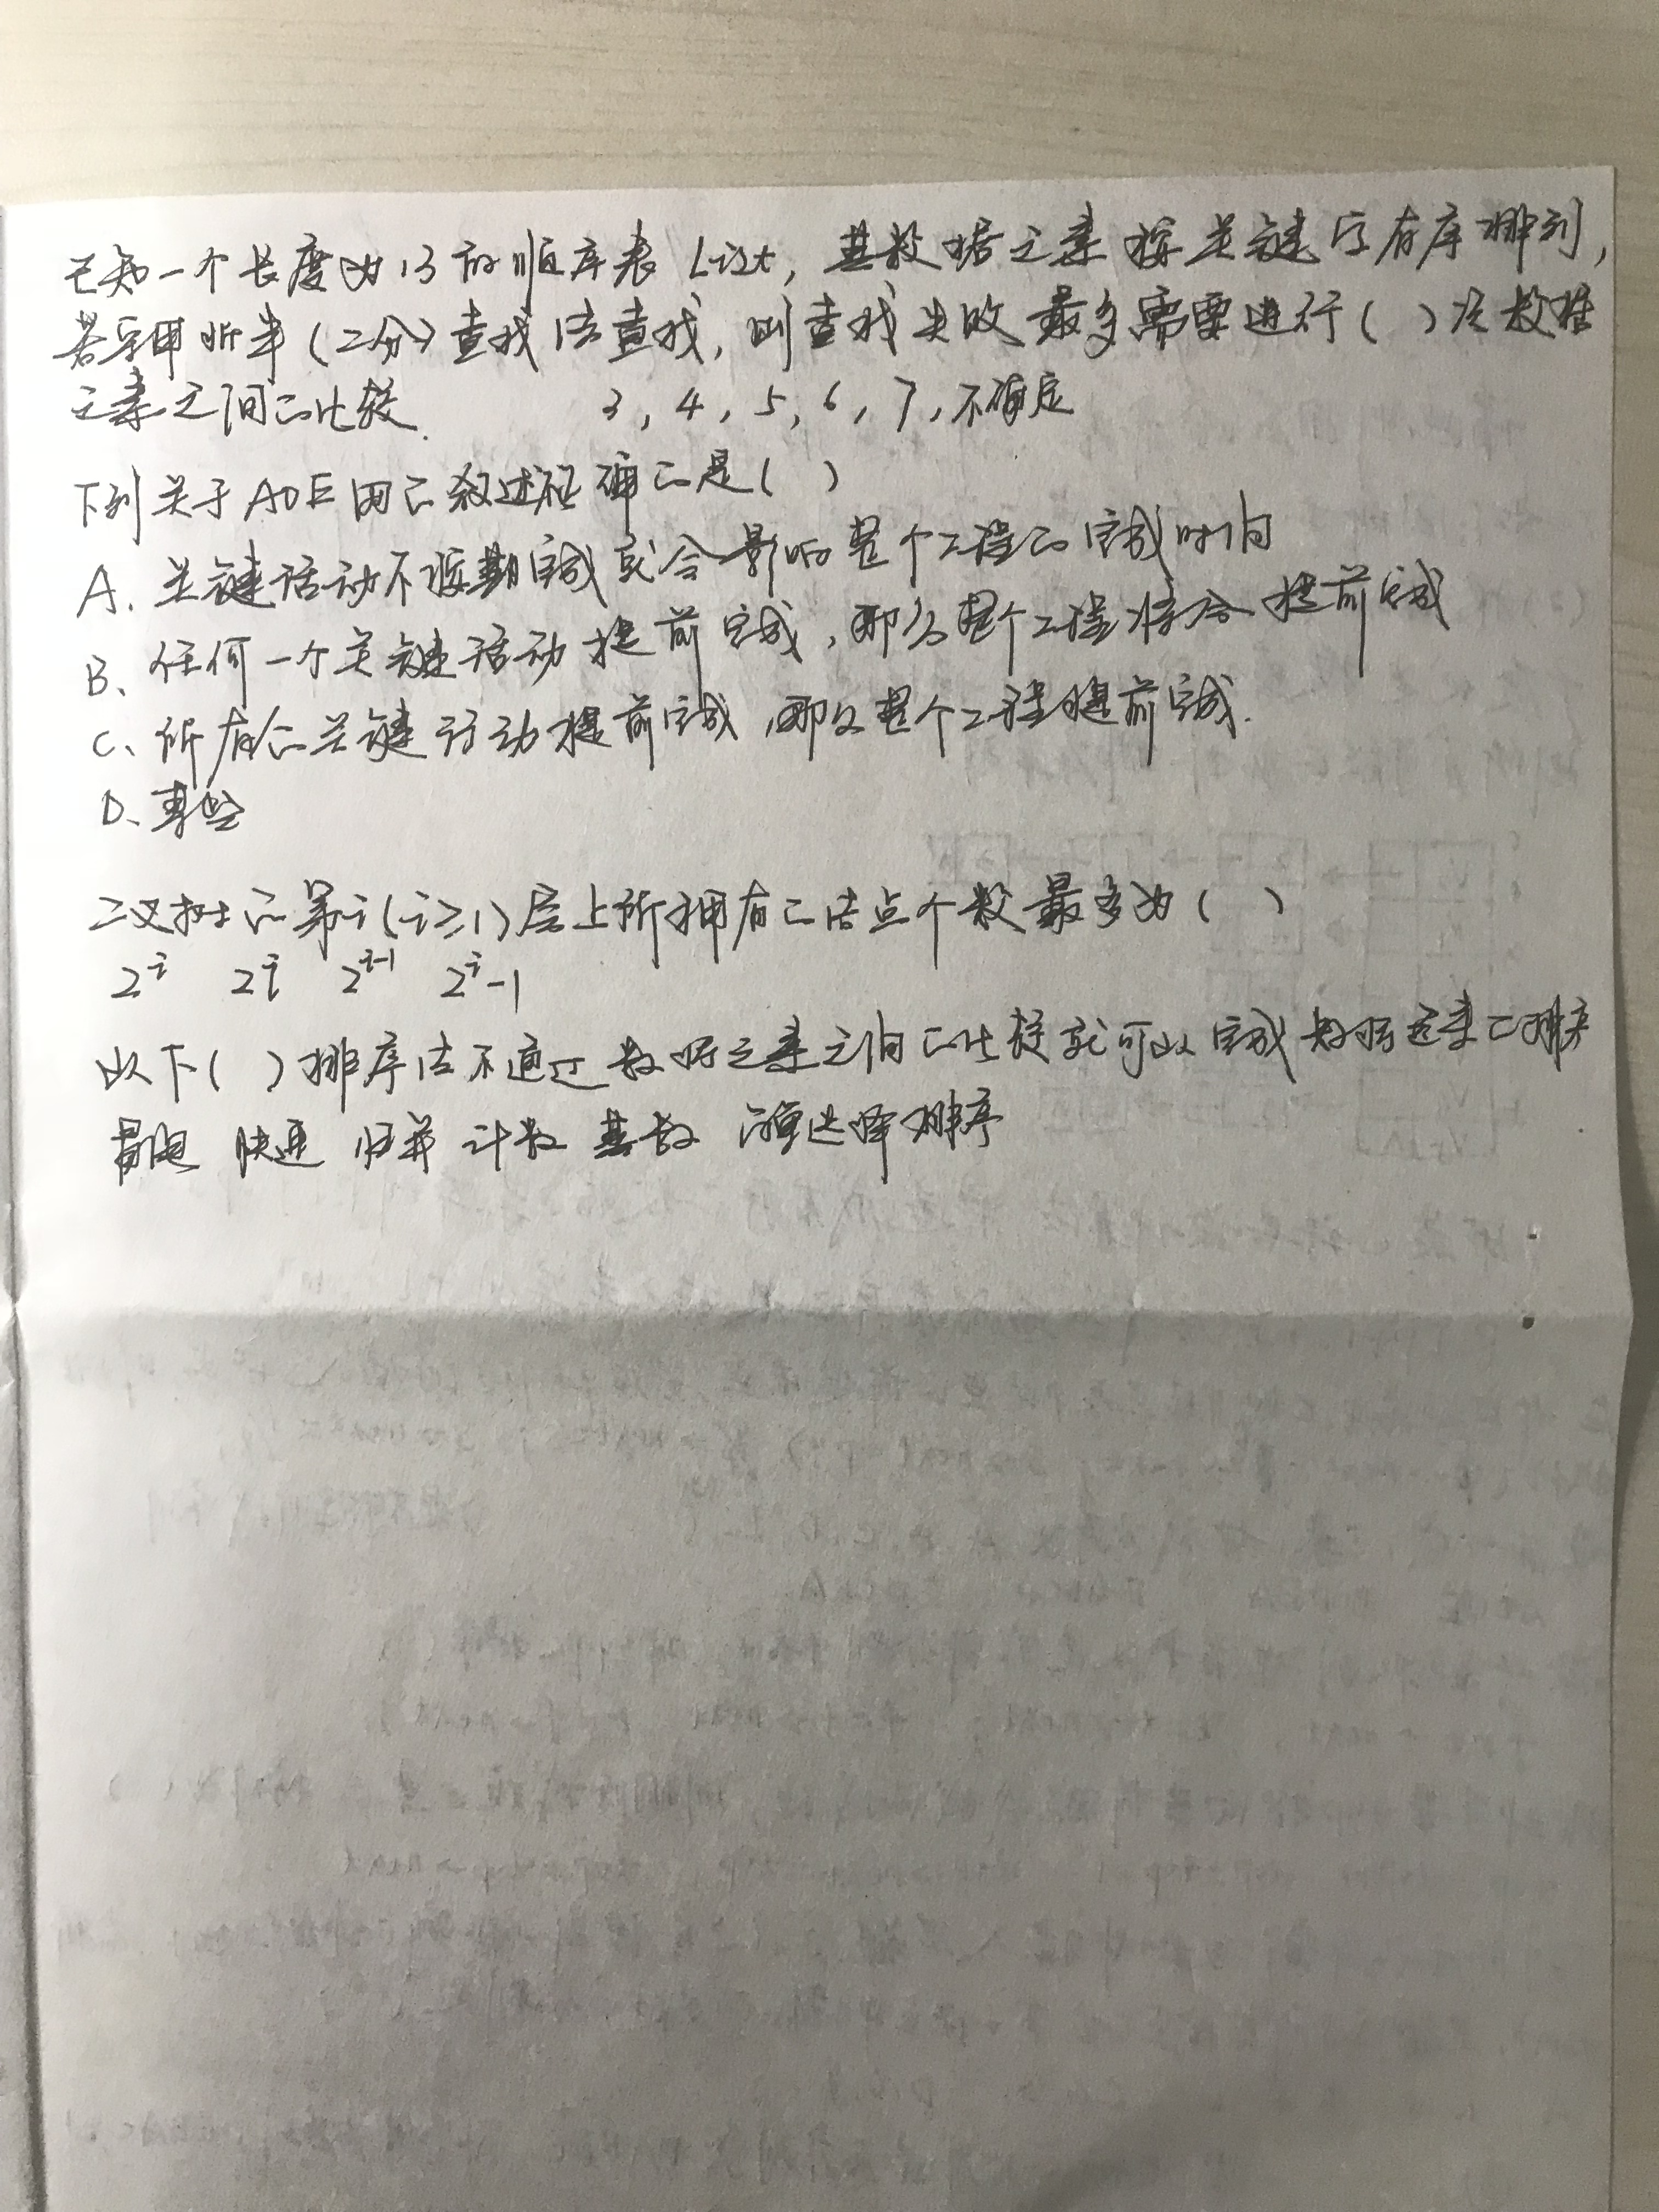 已知一个长度为13的顺序表List，其数据元素按关键字有序排列，
若采用折半（二分）查找法查找，则查找失败最多需要进行（ ）次数据
元素之间的比较. 3，4，5，6，7，不确定
下列关于AOE网的叙述正确的是（ ）
A. 关键活动不按期完成就会影响整个工程的完成时间
B、任何一个关键活动提前完成，那么整个工程将会提前完成
C、所有的关键活动提前完成，那么整个工程提前完成.
D、某些
二叉树的第i（i≥1）层上所拥有的结点个数最多为（ ）
2^i 2i 2^{i-1} 2^i-1
以下（ ）排序法不通过数据元素之间的比较就可以完成数据元素的排序
冒泡 快速 归并 计数 基数 简单选择排序